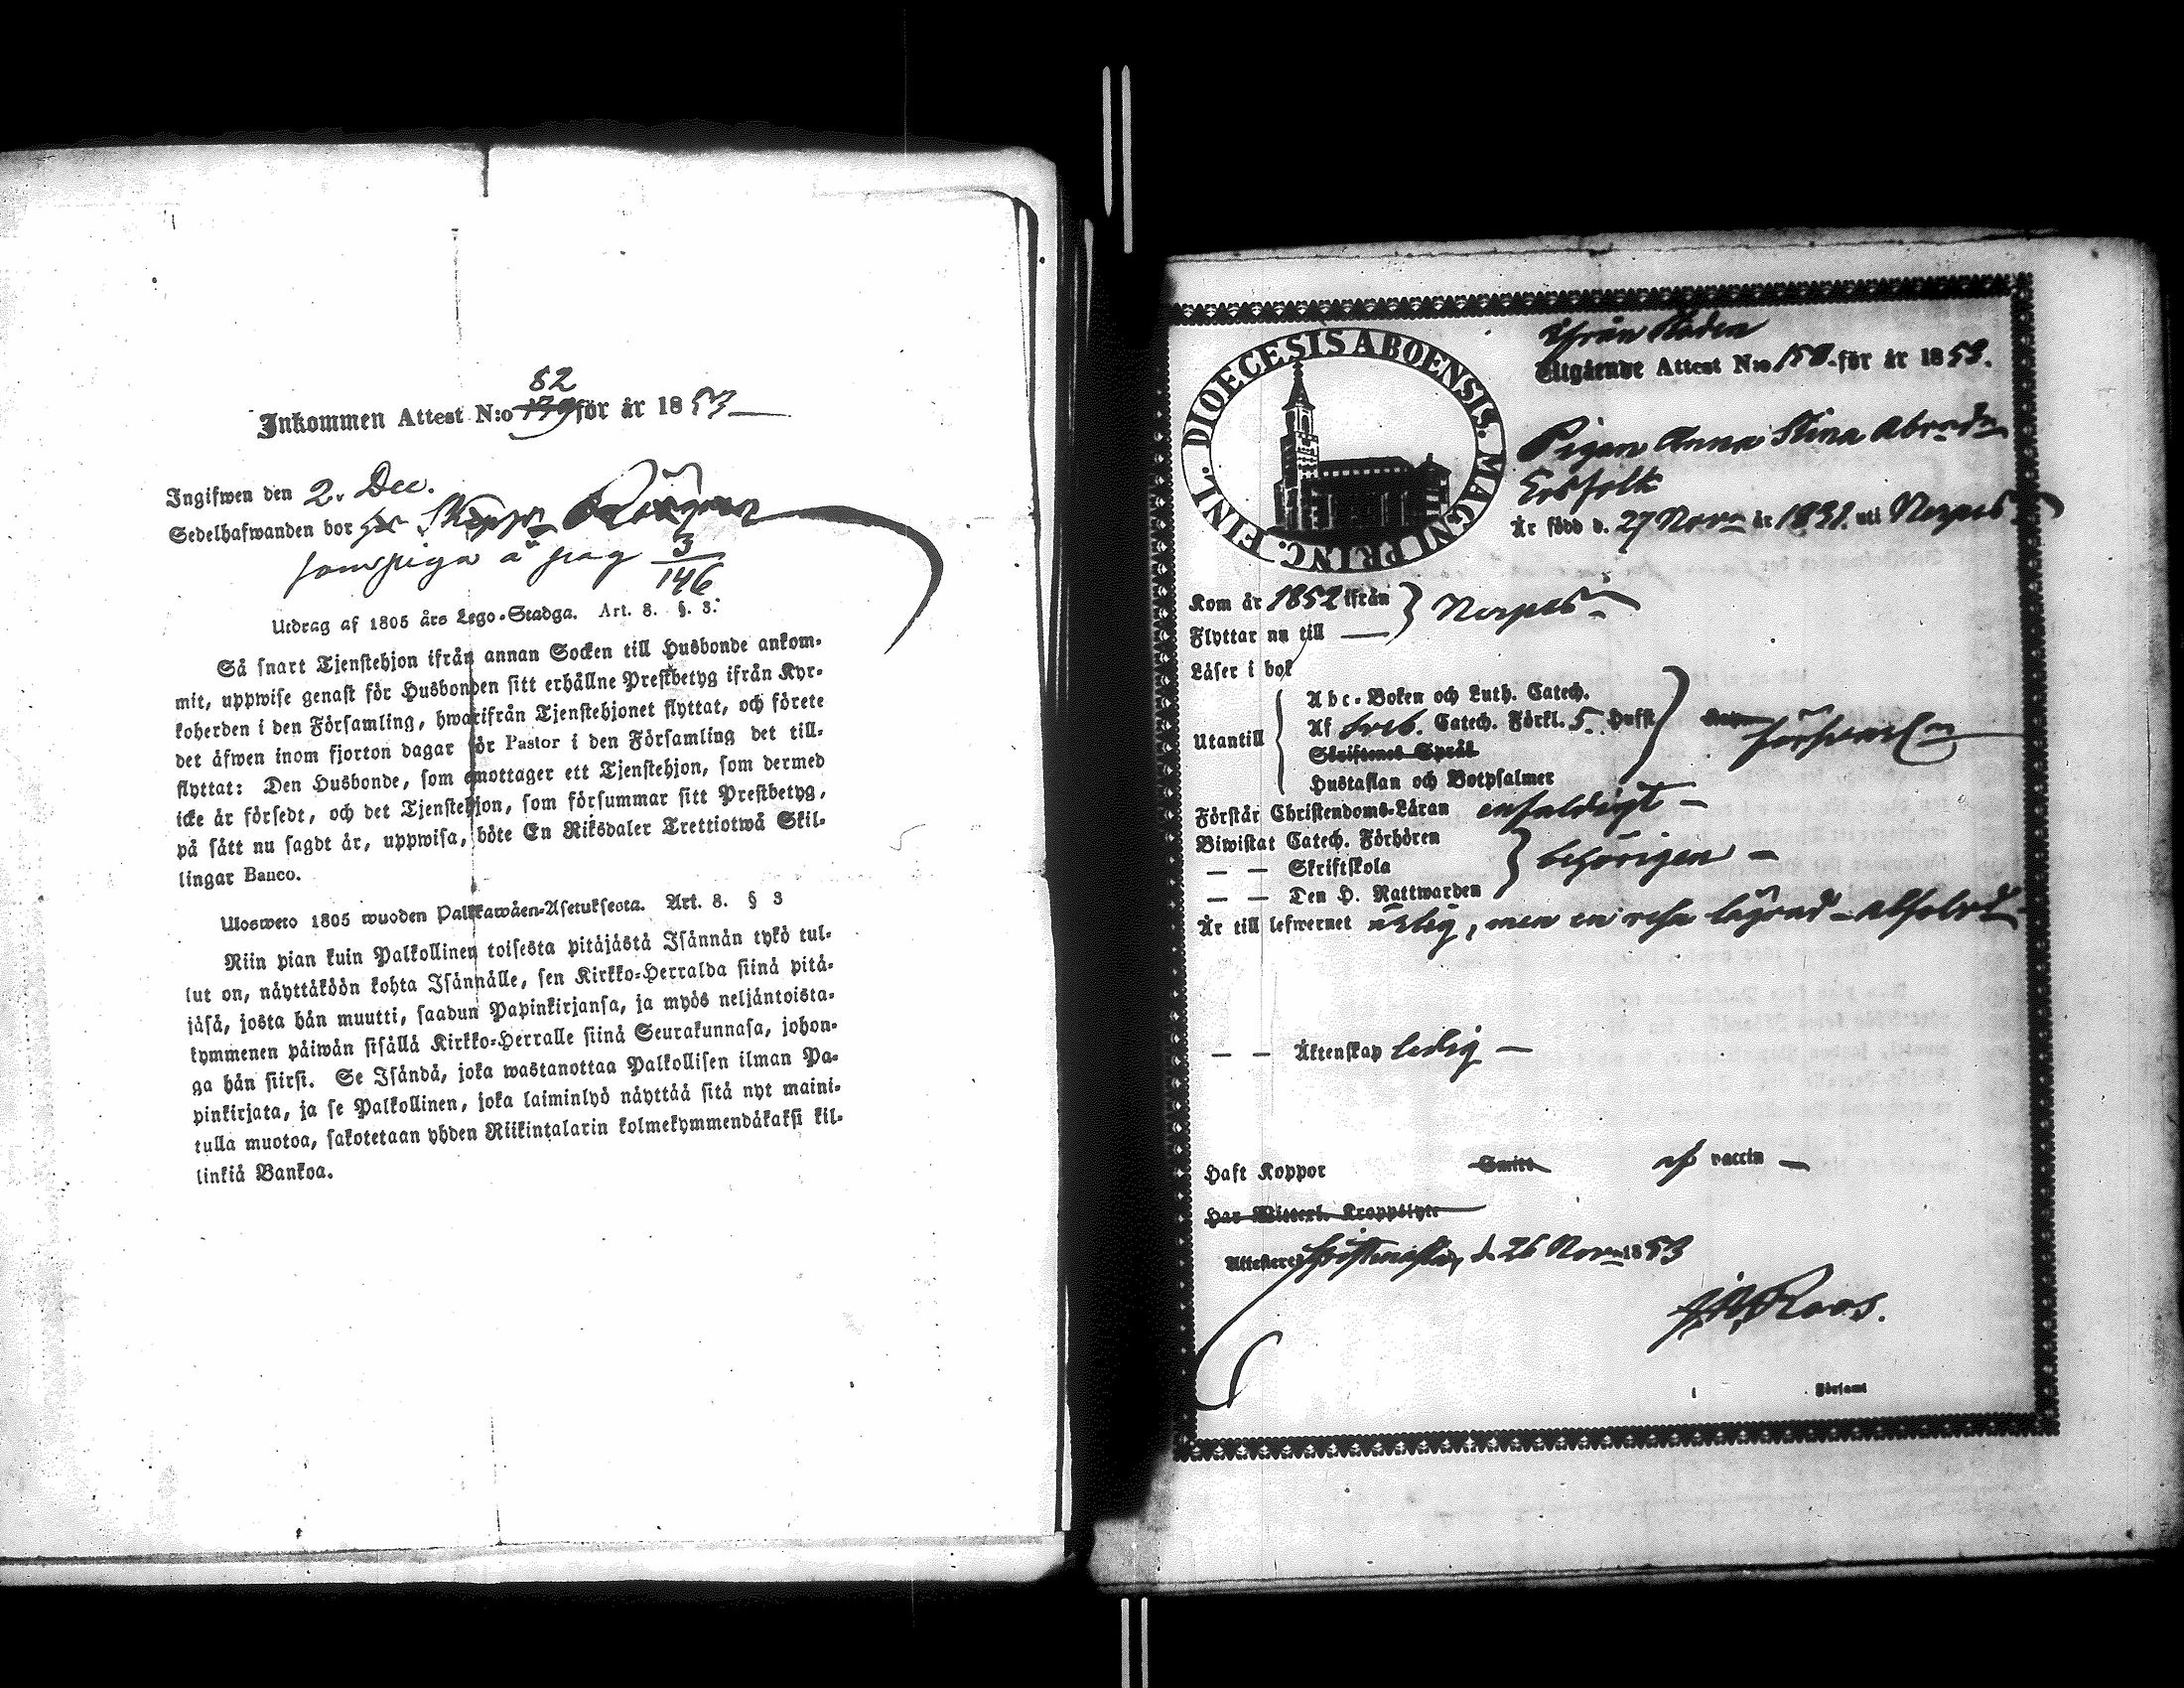 52
Inkommen Attest N:o 179 för år 1853
Ingifwen den 2. Dec.
Sedelhafwanden bor hos Skepps
som piga å pag 3/146
Utdrag af 1805 års Lego-Stadga. Art. 8. §. 3.
Så snart Tjenstehjon ifrån annan Socken till Husbonde ankom-
mit, uppwise genast för Husbonden sitt erhållne Prestbetyg ifrån Kyr-
koherden i den Församling, hwarifrån Tjenstehjonet flyttat, och förete
det äfwen inom fjorton dagar för Pastor i den Församling det till-
flyttat: Den Husbonde, som emottager ett Tjenstehjon, som dermed
icke är försedt, och det Tjenstehjon, som försummar sitt Prestbetyg,
på sätt nu sagdt är, uppwisa, böte En Riksdaler Trettiotwå Skil-
lingar Banco.
Ulosweto 1805 wuoden Palkkawäen-Asetuksesta. Art. 8. § 3
Niin pian kuin Palkollinen toisesta pitäjästä Isännän tykö tul-
lut on, näyttäköön kohta Isännälle, sen Kirkko-Herralda siinä pitä-
jäsä, josta hän muutti, saadun Papinkirjansa, ja myös neljäntoista-
kymmenen päiwän sisällä Kirkko-Herralle siinä Seurakunnasa, johon-
ga hän siirsi. Se Isändä, joka wastanottaa Palkollisen ilman Pa-
pinkirjata, ja se Palkollinen, joka laiminlyö näyttää sitä nyt maini-
tulla muotoa, sakotetaan yhden Riikintalarin kolmekymmendäkaksi kil-
linkiä Bankoa.
DIOECESIS ABOENSIS. MAGNI PRINC. FINL.
ifrån Staden
Utgående Attest N:o 150 för år 1853.
Pigan Anna Stina Abrahdr
Ersfolk
Är född d. 27 Novr år 1831. uti Nerpes
Kom år 1852 ifrån
Flyttar nu till — } Nerpes
Läser i bok
Abc-Boken och Luth. Catech.
Utantill Af Sveb. Catech. Förkl. 5 Hufst försvarl
Skriftenes Språk
Hustaflan och Botpsalmer
Förstår Christendoms-Läran enfaldigt —
Biwistat Catech. Förhören
— — Skriftskola } behörigen —
— — Den H. Nattwarden
Är till lefwernet ärlig, men en resa lägrad — Absolvd
— — Äktenskap ledig —
Haft Koppor Smitt af vaccin —
Har Witterl. Kroppslyte
Attesterar Christinestad, d. 26 Novr 1853
J. N. Roos.
Församl